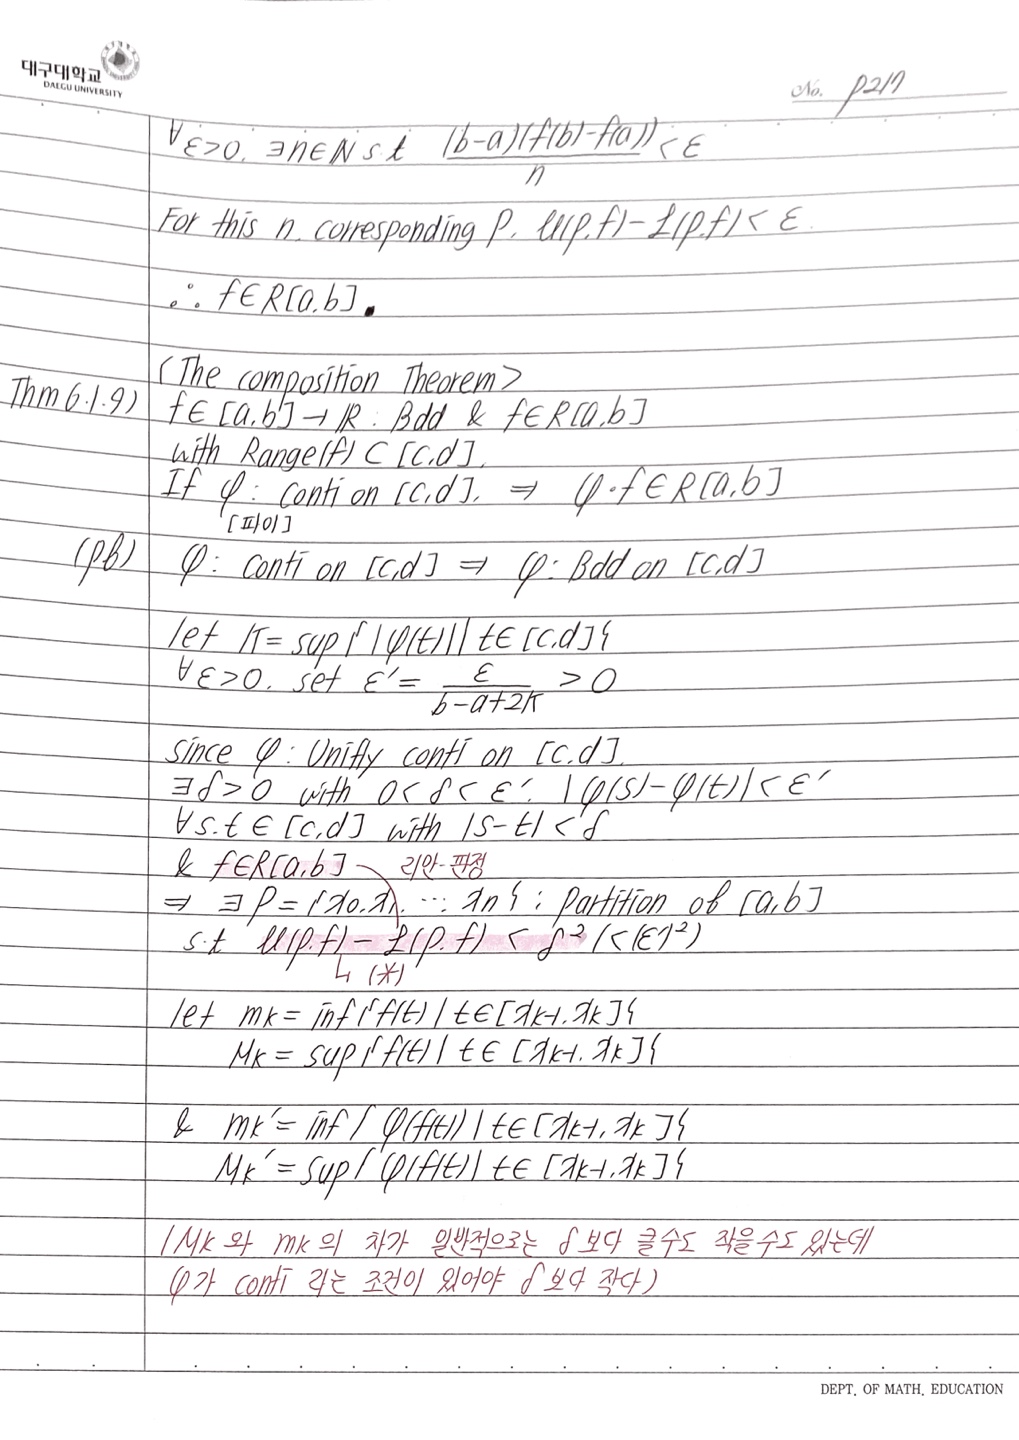 대구대학교
DAEGU UNIVERSITY
No. p217
∀ε>0. ∃n∈N s.t (b-a)(f(b)-f(a))/n < ε
For this n. corresponding P. U(p.f)-L(p.f) < ε.
∴ f∈R[a.b].
(The composition Theorem>
Thm6.1.9) f∈[a,b]→R: Bdd & f∈R[a,b]
with Range(f) ⊂ [c,d].
If φ: conti on [c,d]. ⇒ φ∘f∈R[a,b]
[파이]
(pf) φ: conti on [c,d] ⇒ φ: Bdd on [c,d]
let K = sup{|φ(t)|| t∈[c,d]}
∀ε>0. set ε′ = ε/(b-a+2K) > 0
since φ: Unifly conti on [c,d].
∃δ>0 with 0<δ<ε′. |φ(s)-φ(t)|<ε′
∀s.t∈[c,d] with |s-t|<δ
& f∈R[a,b] 리만-판정
⇒ ∃P={x0.x1. ⋯ xn}: partition of [a,b]
s.t U(p.f)-L(p.f) < δ² (<(ε′)²)
↳ (*)
let mk = inf{f(t) | t∈[xk-1, xk]}
Mk = sup{f(t) | t∈[xk-1, xk]}
& mk′ = inf{φ(f(t)) | t∈[xk-1, xk]}
Mk′ = sup{φ(f(t) | t∈[xk-1, xk]}
(Mk 와 mk 의 차가 일반적으로는 δ보다 클수도 작을수도 있는데
φ가 conti 라는 조건이 있어야 δ보다 작다)
DEPT. OF MATH. EDUCATION